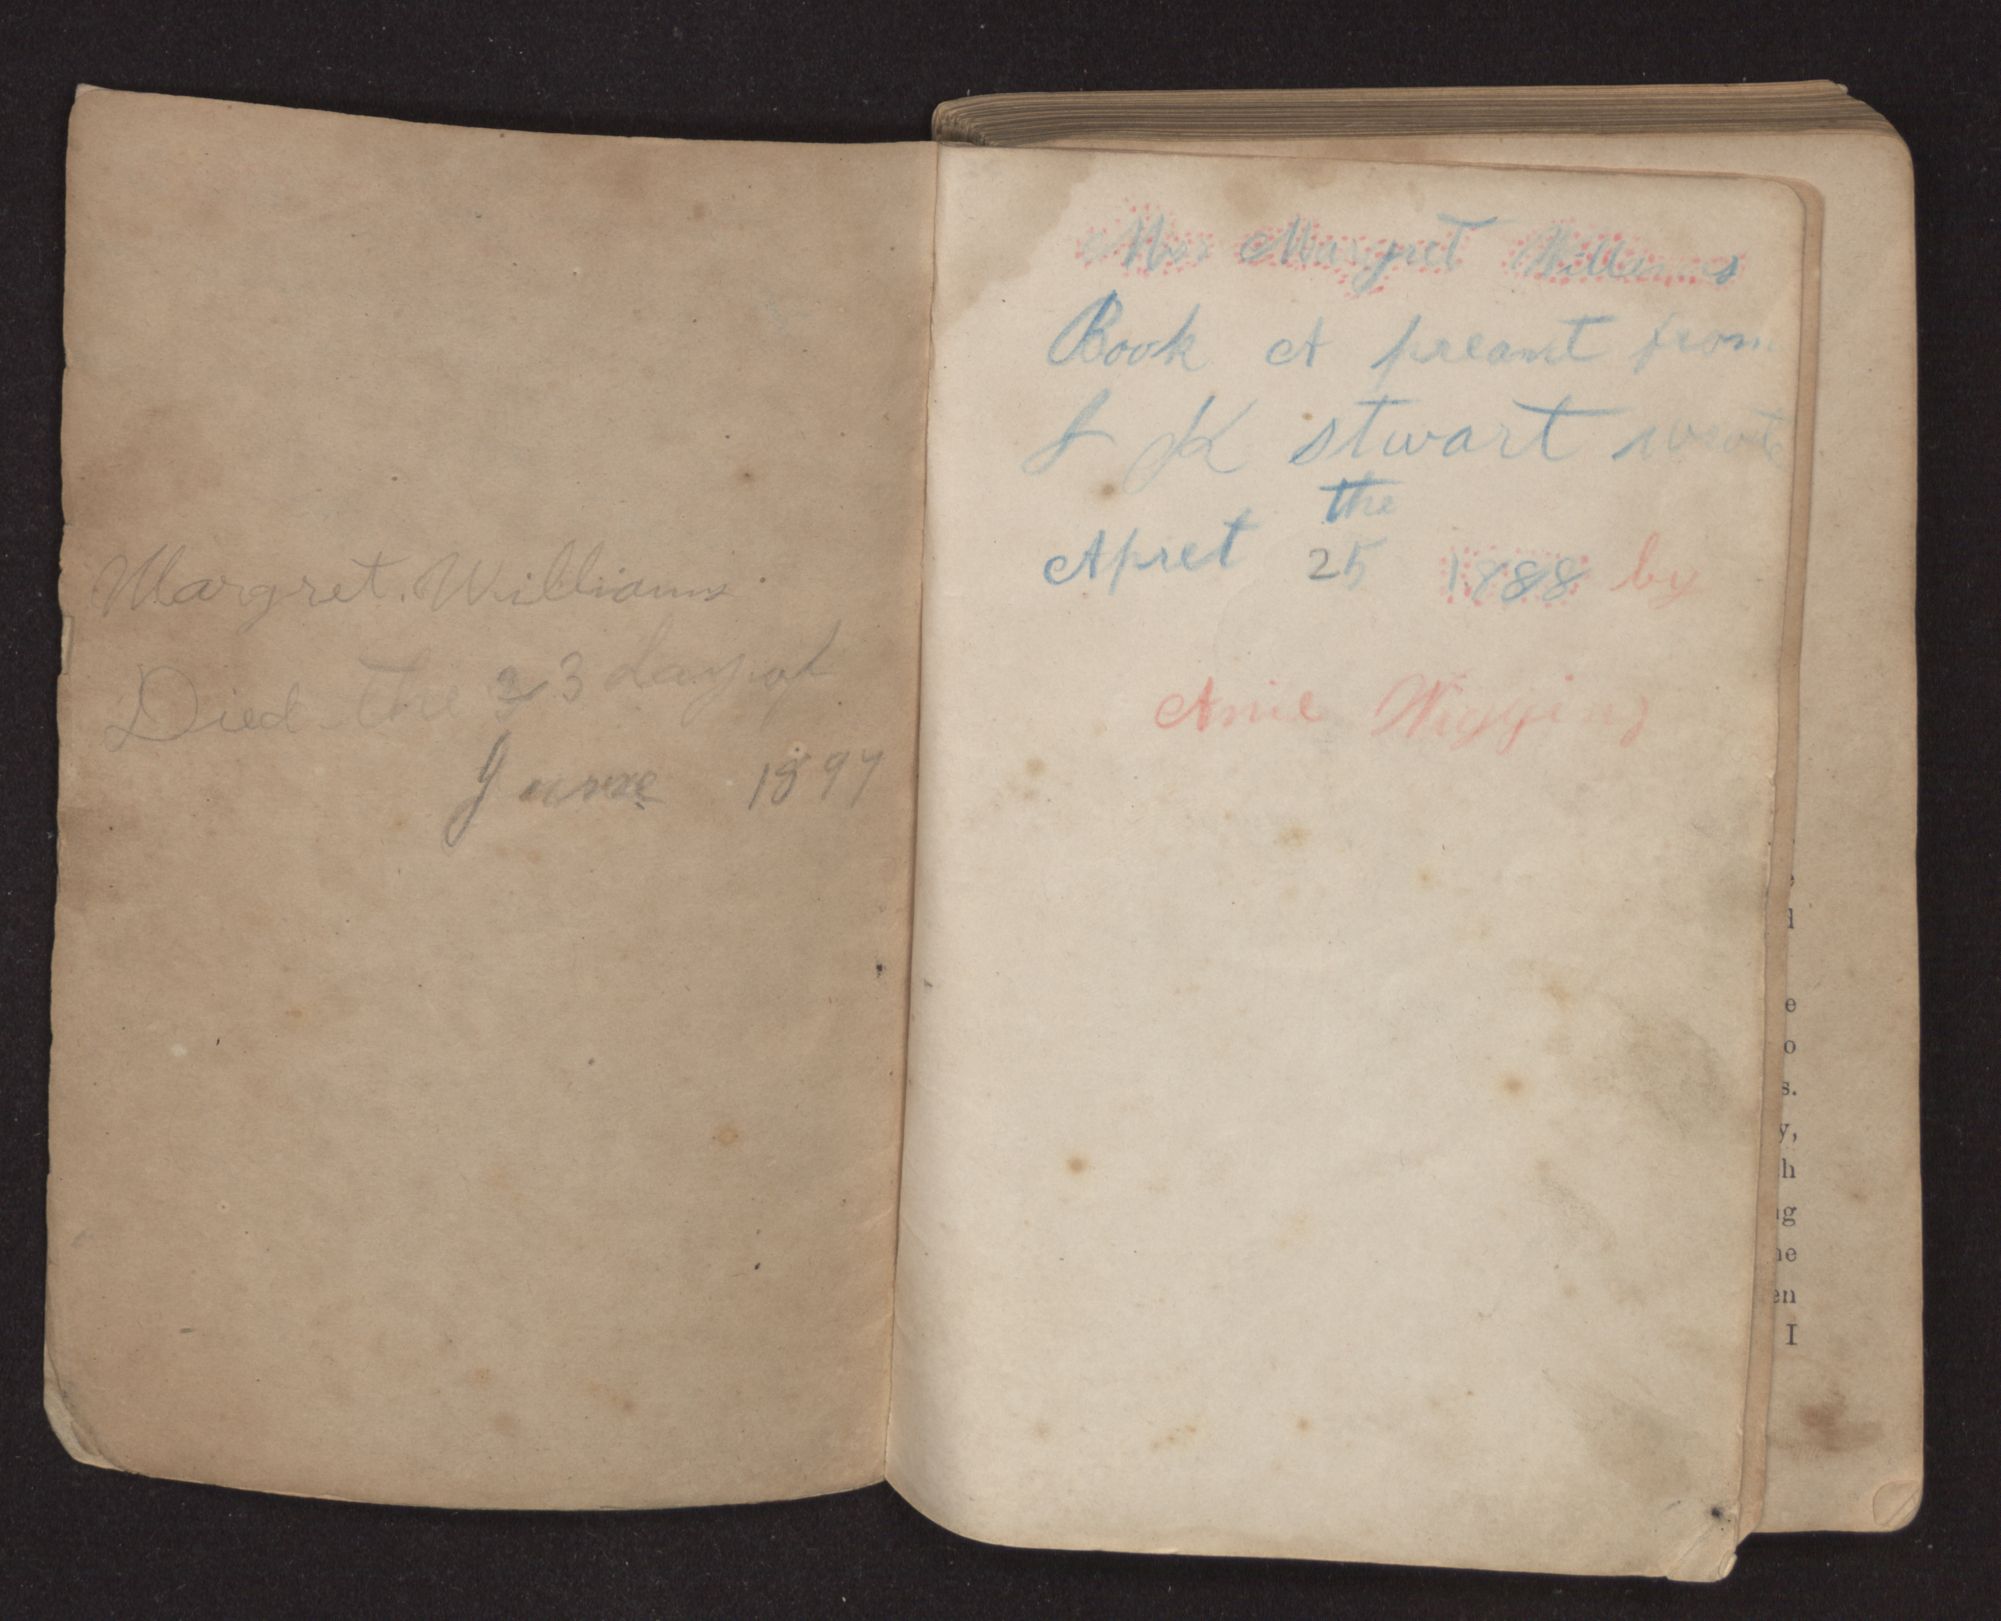 Margret. Williams.
Died the 23 day of
June 1897
Miss Margret Williams
Book A preasnt from
J K stwart wrote
the
Apret 25 1888 by
Anie Wiggins
e
d
e
o
s.
y,
h
ng
he
en
I